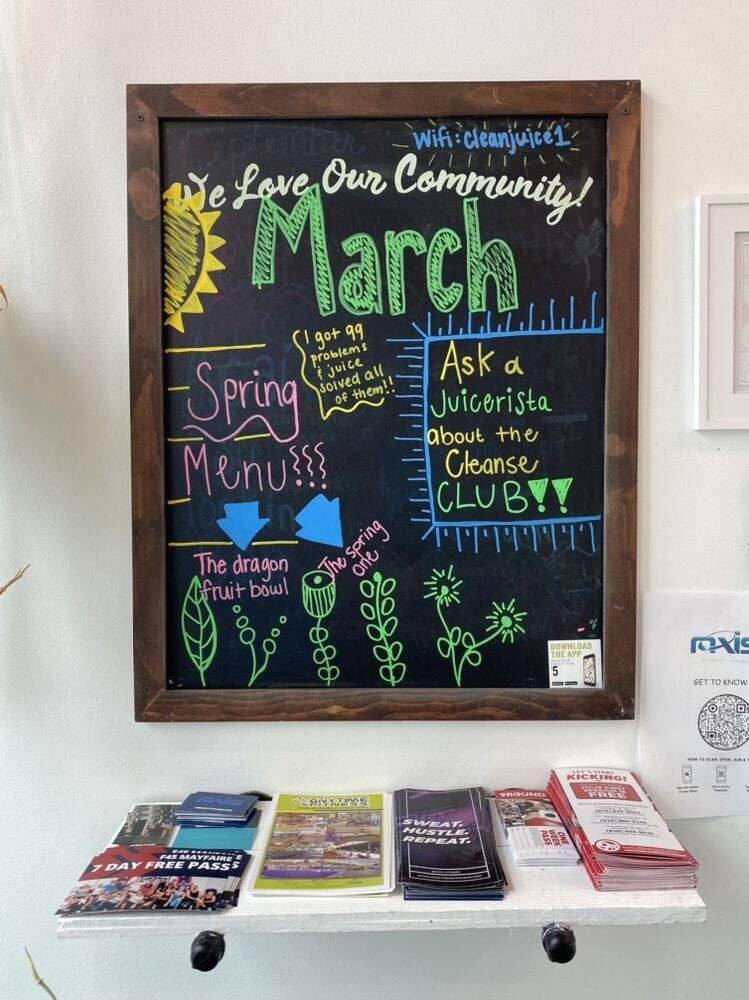 Wifi: cleanjuice1
We Love Our Community!
March
I got 99
problems
& juice
solved all
of them!!
Spring
Menu!!!
Ask a
Juicerista
about the
Cleanse
CLUB!!
The dragon
fruit bowl
The spring
one
DOWNLOAD
THE APP
$5
GET TO KNOW
F45 MAYFAIRE
7 DAY FREE PASS
ANYTIME
FITNESS
SWEAT.
HUSTLE.
REPEAT.
9ROUND
ONE
WEEK
PASS
LET'S START
KICKING!
YOUR FIRST
FREE